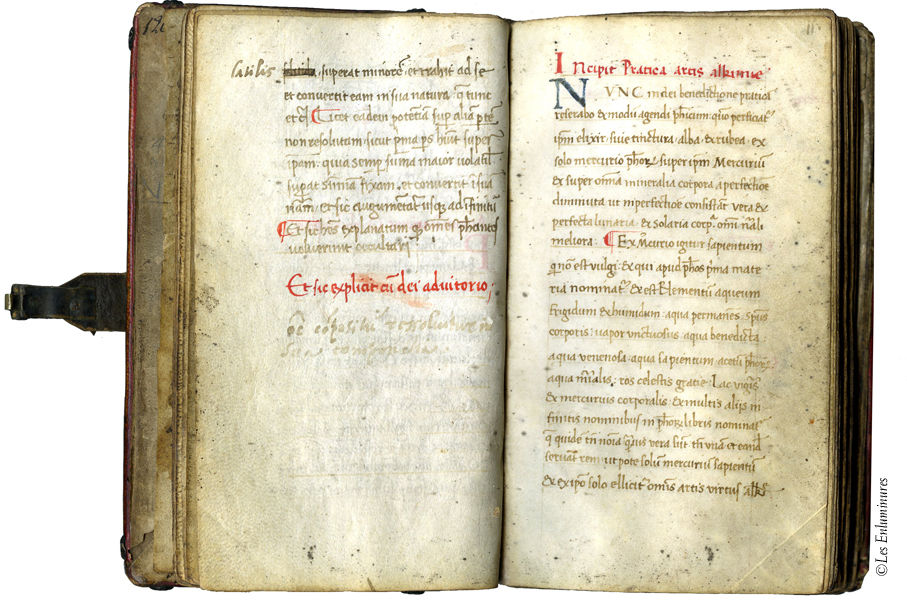 satilis superat minorē et trahit ad se
et convertit eam in sua natura q̄ tunc
etc̄ Licet eadem potētia sup alia ptē
non resolutam sicut pma ps hūit super
ipam quia semp suma maior volatil
supat sūma fixam et convertit ī sua
nām et sic augumētat usq; ad īfinitū
Et sic hēs explanatum omēs phantes
voluerunt occultari
Et sic explicit cū dei aduitorio
11
Incipit Pratica artis alkimie
NVNC in dei benedictione pratica
reserabo & modū agendi phicum quo perficiat
ipm elixir siue tinctura alba & rubea ex
solo mercurio phor super ipm Mercuriū
& super omīa mineralia corpora a perfectiōe
diminuta ut imperfectōe consistāt vera &
perfecta lunaria & solaria corpa omī nāli
meliora Ex Mcurio igitur sapientum
q non est vulgi & qui apud phos pma mate
ria nominat & est Elementū aqueum
frigidum & humidum aqua permanēs spūs
corporis vapor unctuosus aqua benedicta
aqua venenosa aqua sapientum acetū phor
aqua mīalis ros celestis gratie Lac virgīs
& mercurius corporalis & multis alijs in
finitis nominibus in phor libris nominat
q quidē
seruāt rem ut pote solum mercuriū sapientū
& ex ipo solo ellicit omīs artis virtus
©Les Enluminures